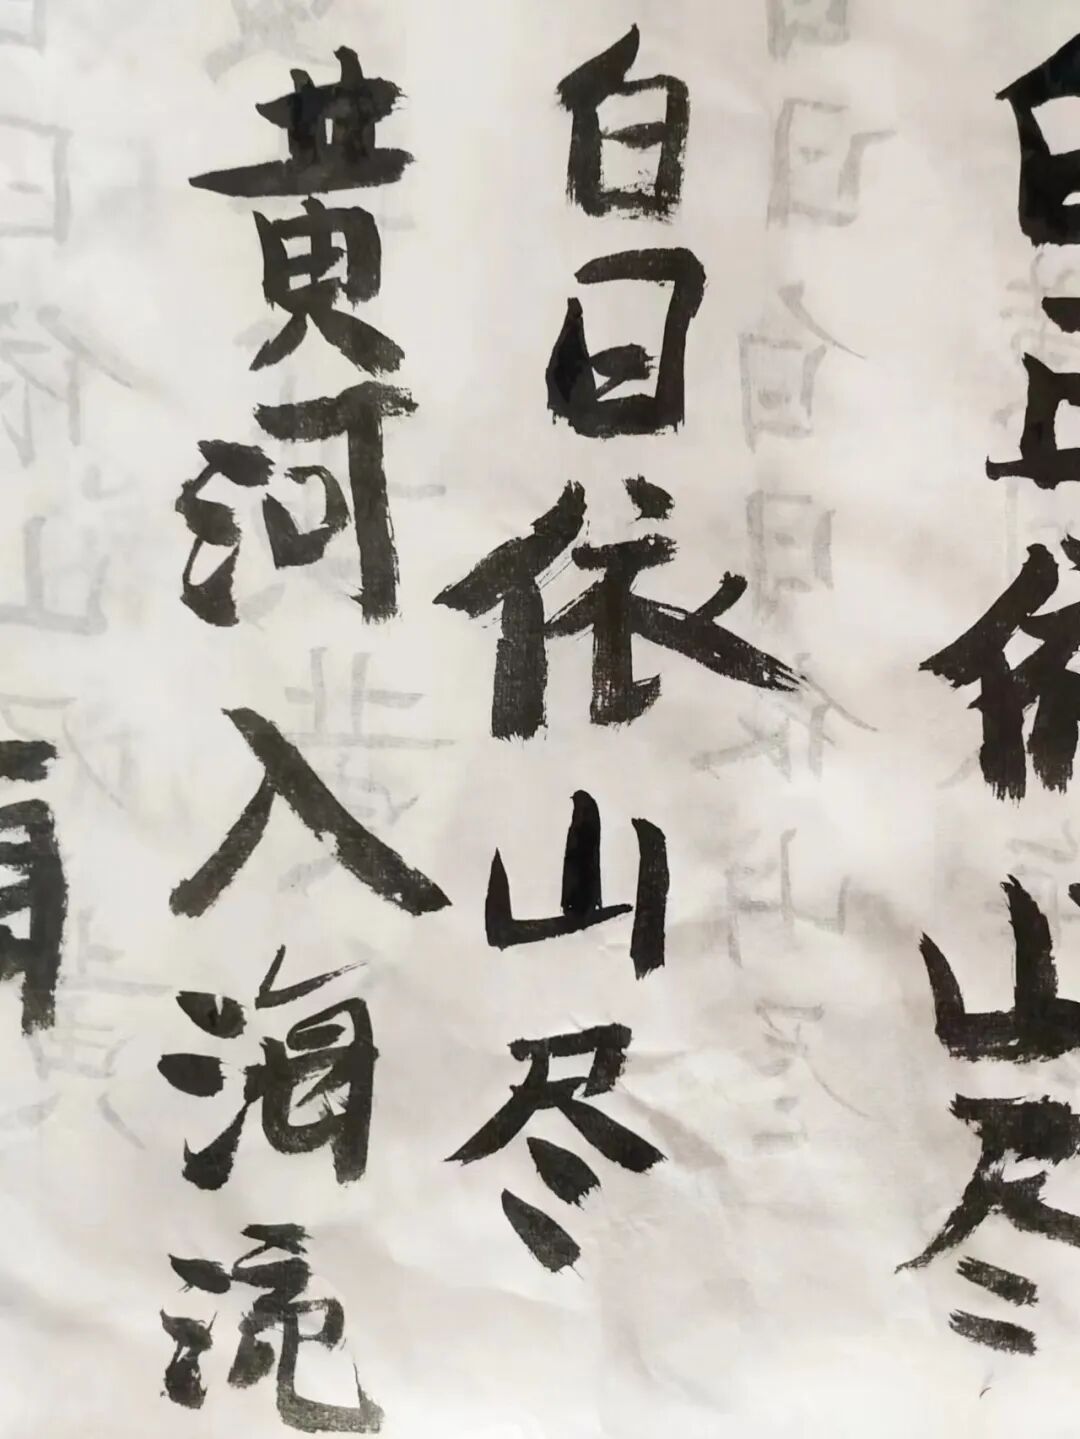 白日依山尽
白日依山尽
黄河入海流